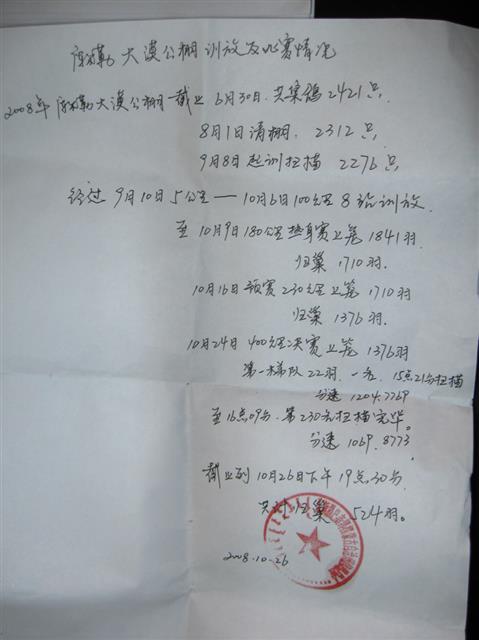 库尔勒大漠公棚训放及比赛情况
2008年库尔勒大漠公棚截止6月30日.共集鸽2421只.
8月1日清棚. 2312只.
9月8日起训扫描 2276只
经过9月10日5公里——10月6日100公里8站训放.
至10月9日180公里热身赛上笼1841羽.
归巢1710羽.
10月16日预赛230公里上笼1710羽
归巢1376羽.
10月24日400公里决赛上笼1376羽
第一梯队22羽.一名.15点21分扫描
分速1204.7769
至16点09分.第230名扫描完毕。
分速1069.8773
截止到10月26日下午19点30分.
共计归巢524羽。
2008.10-26